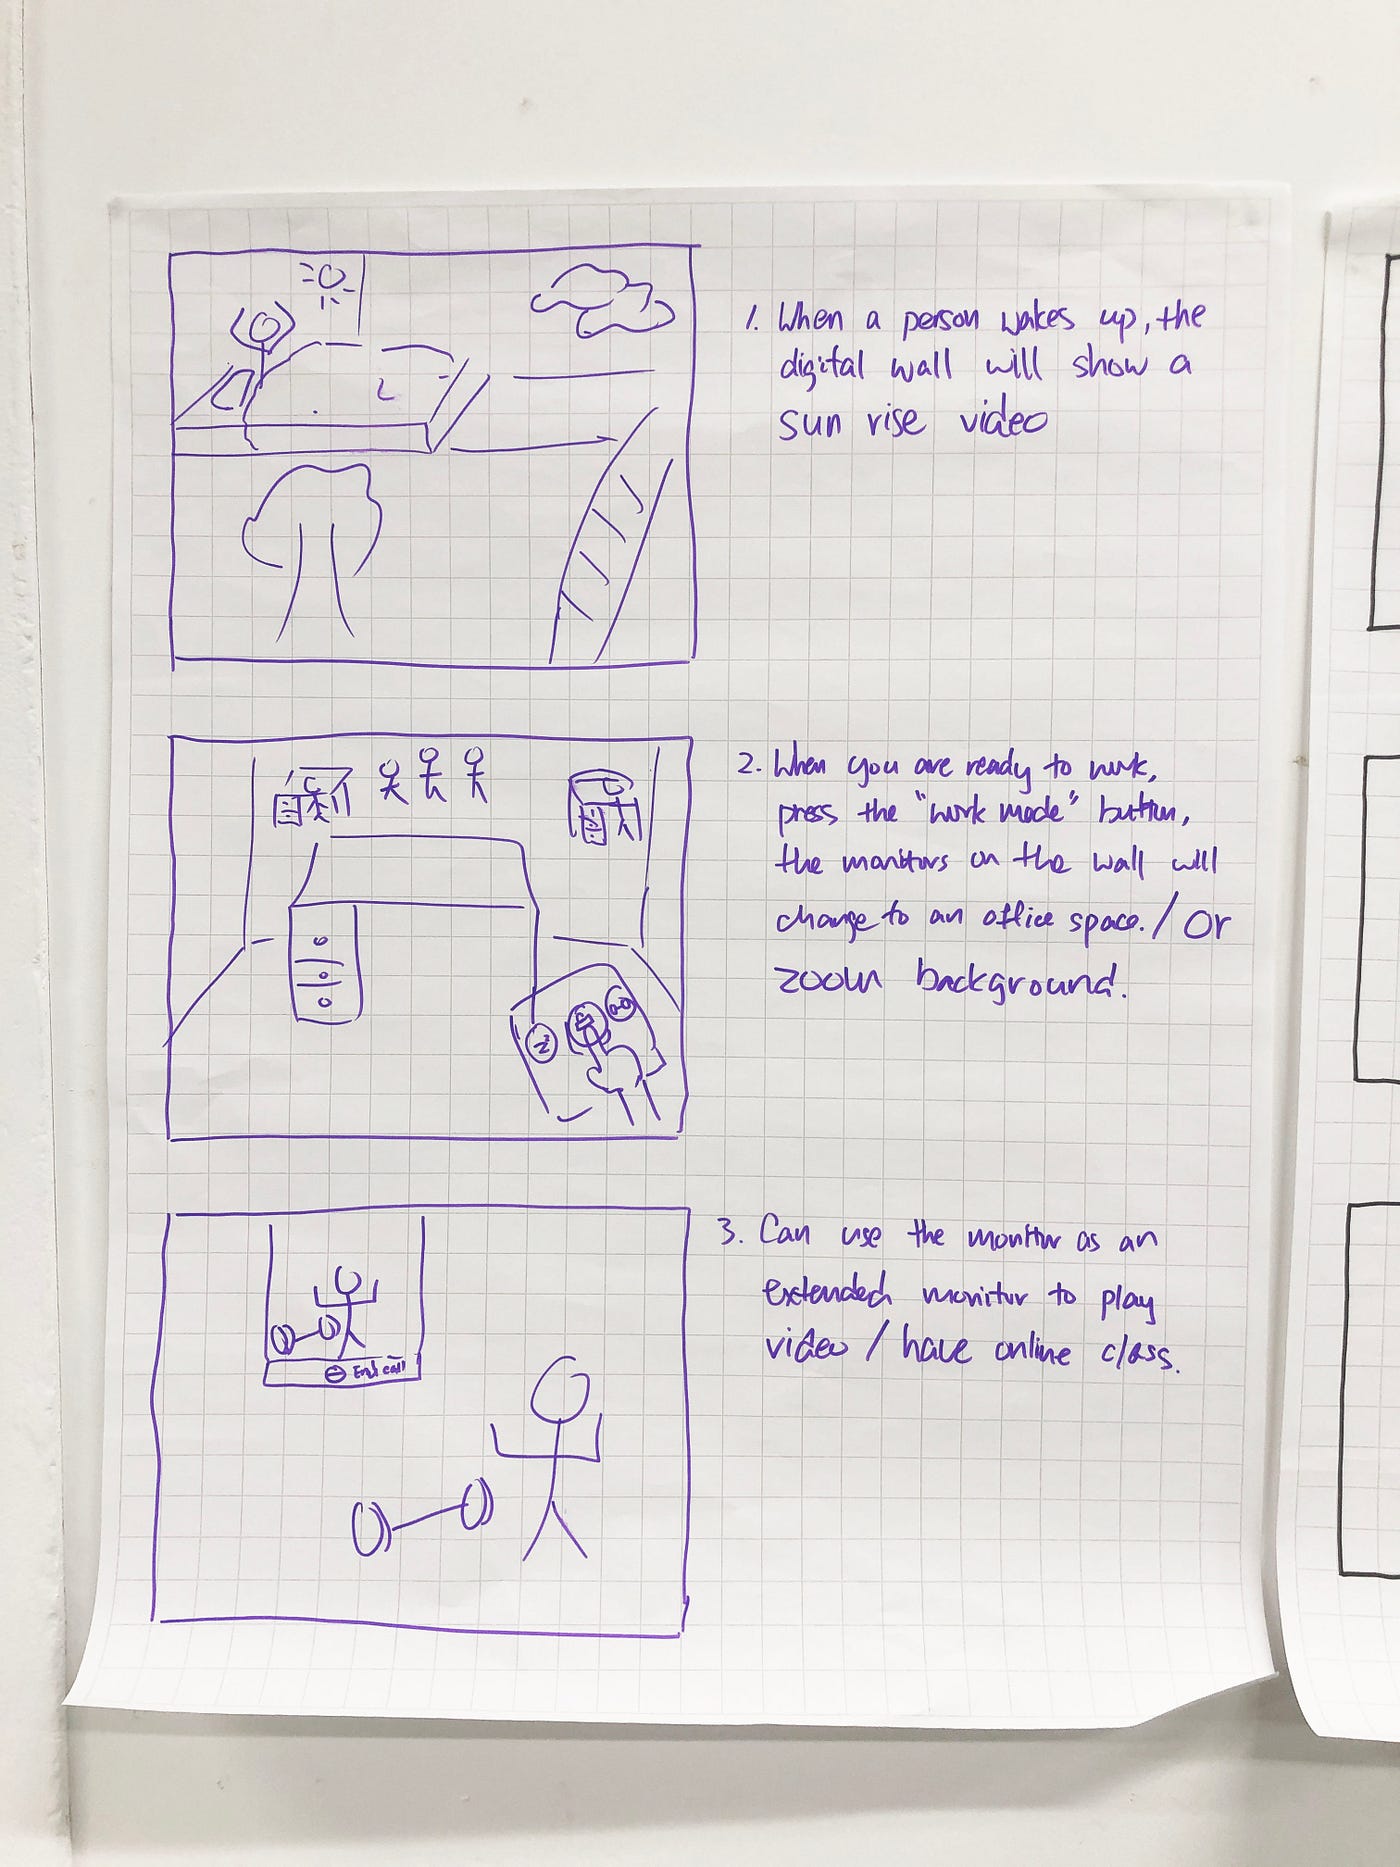 1. When a person wakes up, the
digital wall will show a
sun rise video
2. When you are ready to work,
press the "work mode" button,
the monitors on the wall will
change to an office space. / Or
zoom background.
End call
3. Can use the monitor as an
extended monitor to play
video / have online class.